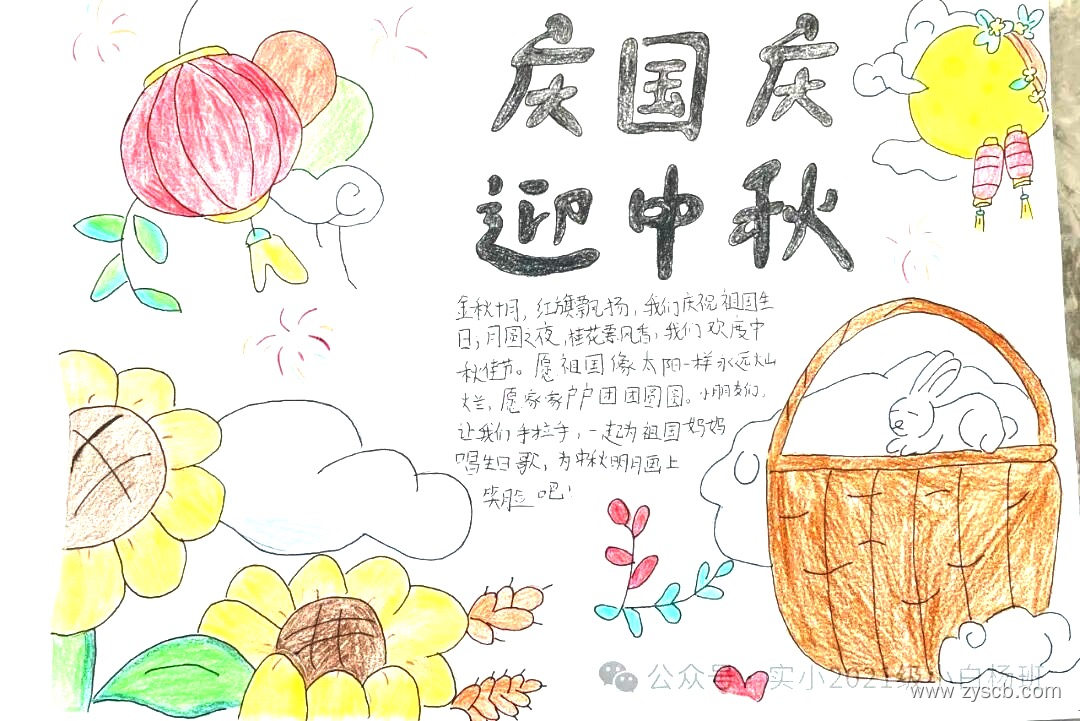 庆国庆
迎中秋
金秋十月，红旗飘扬，我们庆祝祖国生
日，月圆之夜，桂花飘香，我们欢度中
秋佳节。愿祖国像太阳一样永远灿
烂，愿家家户户团团圆圆。小朋友们，
让我们手拉手，一起为祖国妈妈
唱生日歌，为中秋明月画上
笑脸吧！
公众号 实小2021级小白杨班
www.zyscb.com